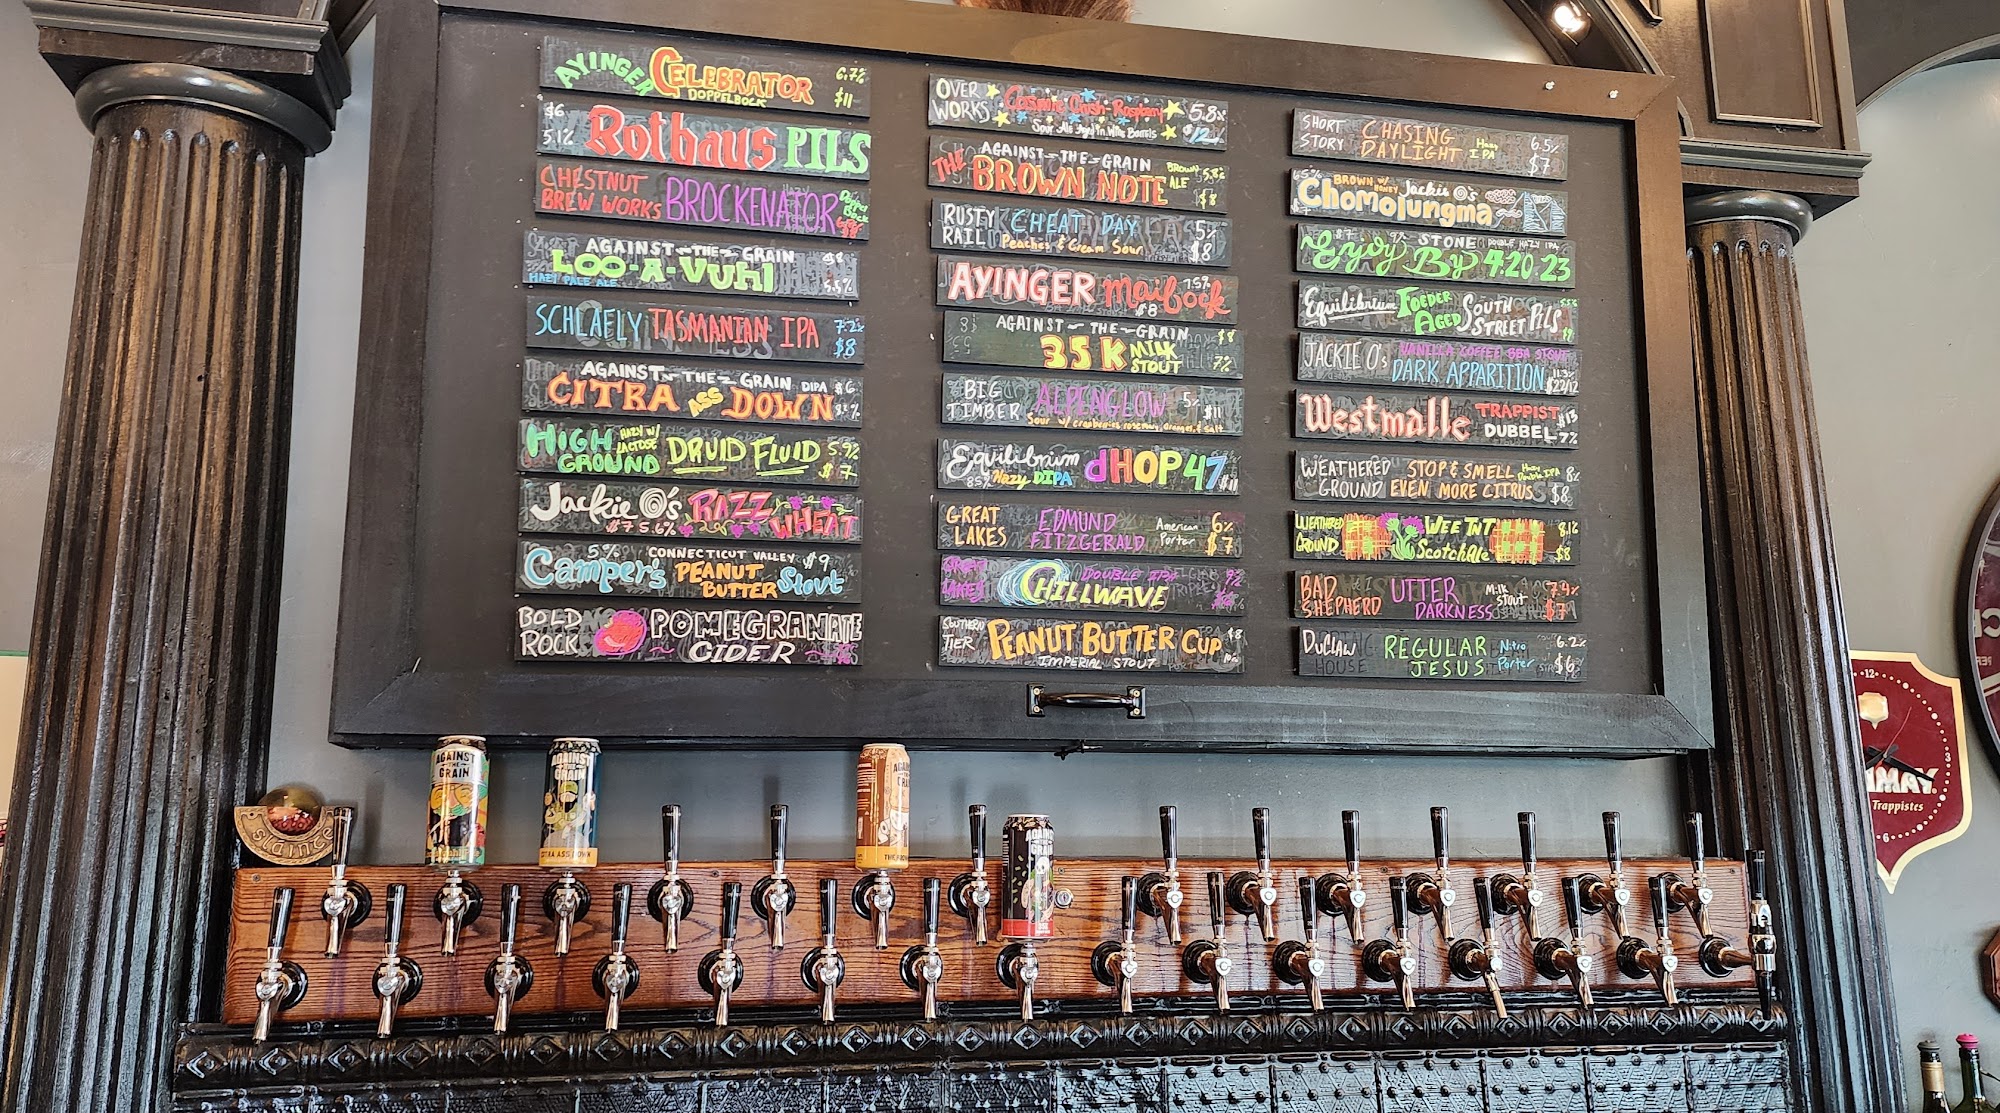 AYINGER CELEBRATOR 6.7%
DOPPELBOCK $11
$6 5.1% Rothaus PILS
CHESTNUT BREW WORKS BROCKENATOR
AGAINST-THE-GRAIN $8
LOO-A-VUhl
HAZY PALE ALE 5.5%
SCHLAFLY TASMANIAN IPA 7.2% $8
AGAINST-THE-GRAIN DIPA $6
CITRA ASS DOWN
HIGH GROUND HAZY W/ LACTOSE DRUID FLUID 5.9% $7
Jackie O's RAZZ WHEAT
$7 5.6%
5% CONNECTICUT VALLEY $9
Camper's PEANUT BUTTER Stout
BOLD ROCK POMEGRANATE CIDER
OVER WORKS Cosmic Crush Raspberry 5.8%
Sour Ale Aged In Wine Barrels $12
AGAINST-THE-GRAIN
THE BROWN NOTE BROWN ALE 5.8% $8
RUSTY RAIL CHEAT DAY 5%
Peaches & Cream Sour $8
AYINGER Maibock 7.5%
$8
AGAINST-THE-GRAIN $8
35 K MILK STOUT 7%
BIG TIMBER ALPENGLOW 5% $11
Sour w/ cranberries, rosemary, oranges, & salt
Equilibrium dHOP47
8.5% Hazy DIPA $11
GREAT LAKES EDMUND FITZGERALD American Porter 6% $7
GREAT LAKES DOUBLE IPA 9%
CHILLWAVE
SOUTHERN TIER PEANUT BUTTER CUP $8
IMPERIAL STOUT 10%
SHORT STORY CHASING DAYLIGHT Hazy IPA 6.5% $7
6.5% BROWN W/ HONEY Jackie O's
$7 Chomolungma
$7 9% STONE DOUBLE HAZY IPA
Enjoy By 4.20.23
Equilibrium FOEDER AGED SOUTH STREET PILS 5.5% $9
JACKIE O's VANILLA COFFEE BBA STOUT
DARK APPARITION 11.3% $22/12
Westmalle TRAPPIST DUBBEL $13 7%
WEATHERED GROUND STOP & SMELL EVEN MORE CITRUS Hazy Double IPA 8% $8
WEATHERED GROUND WEE TNT Scotch Ale 8.1% $8
BAD SHEPHERD UTTER DARKNESS Milk Stout 7.4% $7
DuClaw REGULAR JESUS Nitro Porter 6.2% $6
AGAINST THE GRAIN
AGAINST THE GRAIN
CITRA ASS DOWN
Sláinte
12
3
Trappistes
6